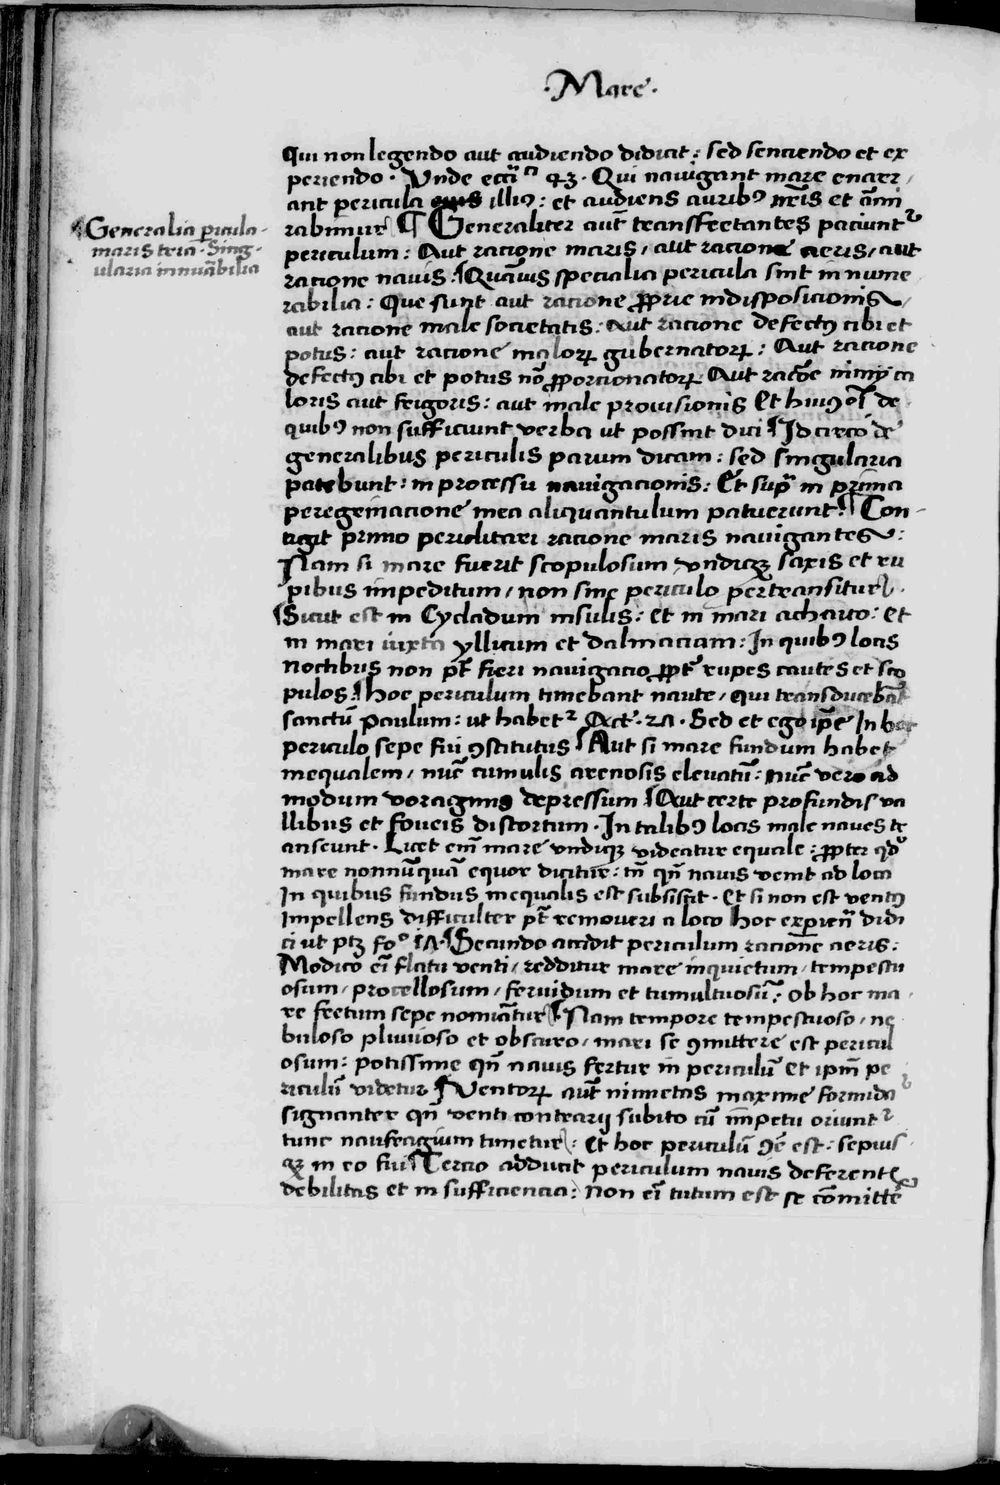 ·Mare·
Qui non legendo aut audiendo didicit: sed senciendo et ex
periendo. Unde eccĩᶜⁱ 43. Qui navigant mare enarr
ant pericula illiꝰ: et audiens auribꝰ nr̃is et am̃i
rabimur ¶ Generaliter aut̃ transfretantes paciunt᷑
periculum: Aut racione maris, aut racione aeris, aut
racione navis. Quãvis specialia pericula sint in nume
rabilia: Que sunt aut racione ꝓprie indisposicionis,
aut racione male societatis: aut racione defectꝰ cibi et
potus: aut racione malorꝝ gubernatorꝝ: Aut racione
defectꝰ cibi et potus nõ ꝓporcionatorꝝ Aut racõe nimij ca
loris aut frigoris: aut male provisionis Et huiꝰmõi de
quibꝰ non sufficiunt verba ut possint dici Id circo de
generalibus periculis parum dicam: sed singularia
patebunt: in processu navigacionis: Et supͣ in prima
peregrinacione mea aliquantulum patuerunt. Con-
tigit primo periclitari racione maris navigantes:
Nam si mare fuerit scopulosum vndiqꝫ saxis et ru
pibus impeditum, non sine periculo pertransitur.
Sicut est in Cycladum insulis: et in mari achaico: et
in mari iuxta yllicum et dalmaciam: In quibꝰ locis
noctibus non pt̃ fieri navigacio ꝓpt᷑ rupes cautes et sco
pulos. Hoc periculum timebant naute, qui transducebãt
sanctũ paulum: ut habet᷑ Act. 27. Sed et ego ip̃e In hoc
periculo sepe fui ꝯstitutus Aut si mare fundum habet
inequalem, nũc cumulis arenosis elevatũ: nũc vero ad
modum voraginis depressum Aut certe profundis va
llibus et foveis distortum. In talibꝰ locis male naves tr
anseunt. Licet em̃ mare vndiqꝫ videatur equale: ꝓpter qd̃
mare nonnũquã equor dicitur: tñ qñ navis venit ad loca
In quibus fundus inequalis est subsistit. Et si non est ventꝰ
impellens difficulter pt̃ removeri a loco hoc experien̄ didi
ci ut ptꝫ foº 17. Secundo accidit periculum racione aeris:
Modico em̃ flatu venti, redditur mare inquietum, tempestu
osum, procellosum, fervidum et tumultuosũ: ob hoc ma
re fretum sepe nomĩatur. Nam tempore tempestuoso, ne
buloso pluvioso et obscuro, mari se ꝯmittere est pericul
osum: potissime qñ navis fertur in periculũ et ipm̃ pe
riculũ videtur Ventorꝝ aut̃ nimietas maxime formida
signanter qñ venti contrarij subito cũ impetu oriunt᷑
tunc naufragium timetur: Et hoc periculũ ꝯẽ est: sepius
qꝫ in eo fui Tercio adducit periculum navis deferentis
debilitas et in sufficiencia: Non em̃ tutum est se com̃itte
Generalia picula
maris tria. Sing-
ularia innuãbilia